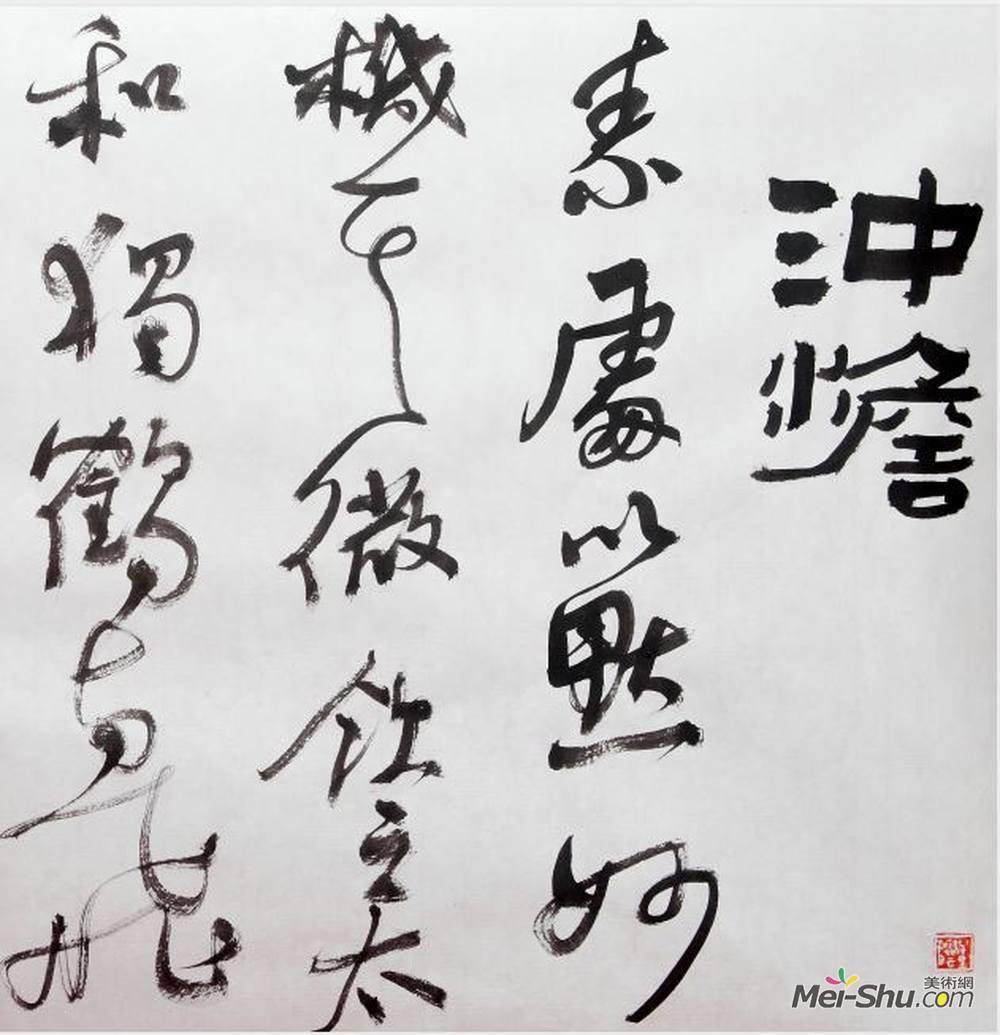 沖澹
素處以默妙
機其微飲之太
和獨鶴與飛
美術網
Mei-Shu.com